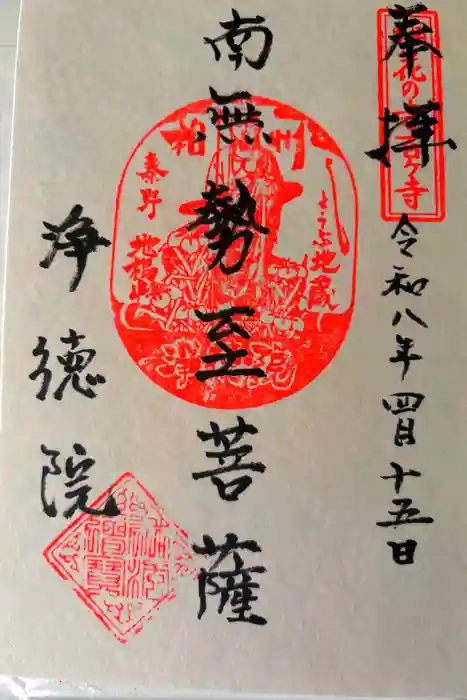 奉拝
令和八年四月十五日
南無勢至菩薩
浄徳院
相州
秦野
とうふ地蔵